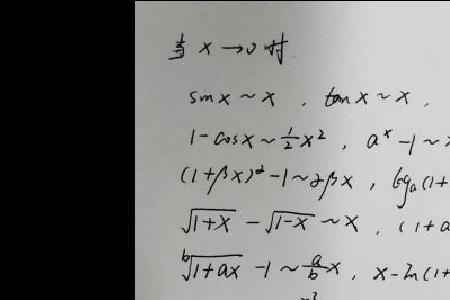 当 x → 0 时
sin x ~ x , tan x ~ x ,
1 - cos x ~ \frac{1}{2} x^2 , a^x - 1 ~
(1 + βx)^α - 1 ~ αβx , log_a (1+
\sqrt{1+x} - \sqrt{1-x} ~ x , (1 + a
\sqrt[b]{1+ax} - 1 ~ \frac{a}{b} x , x - ln(1+